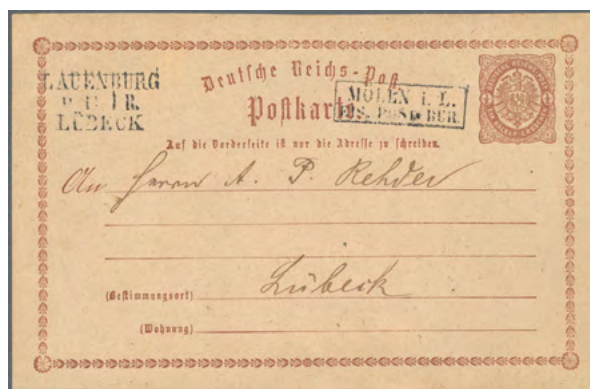 LAUENBURG
LÜBECK
Deutsche Reichs-Post
MÖLEN i. L.
EIS. POST. BUR.
Postkarte
Auf die Vorderseite ist nur die Adresse zu schreiben.
An Herrn A. P. Rehder
Lübeck
(Bestimmungsort)
(Wohnung)